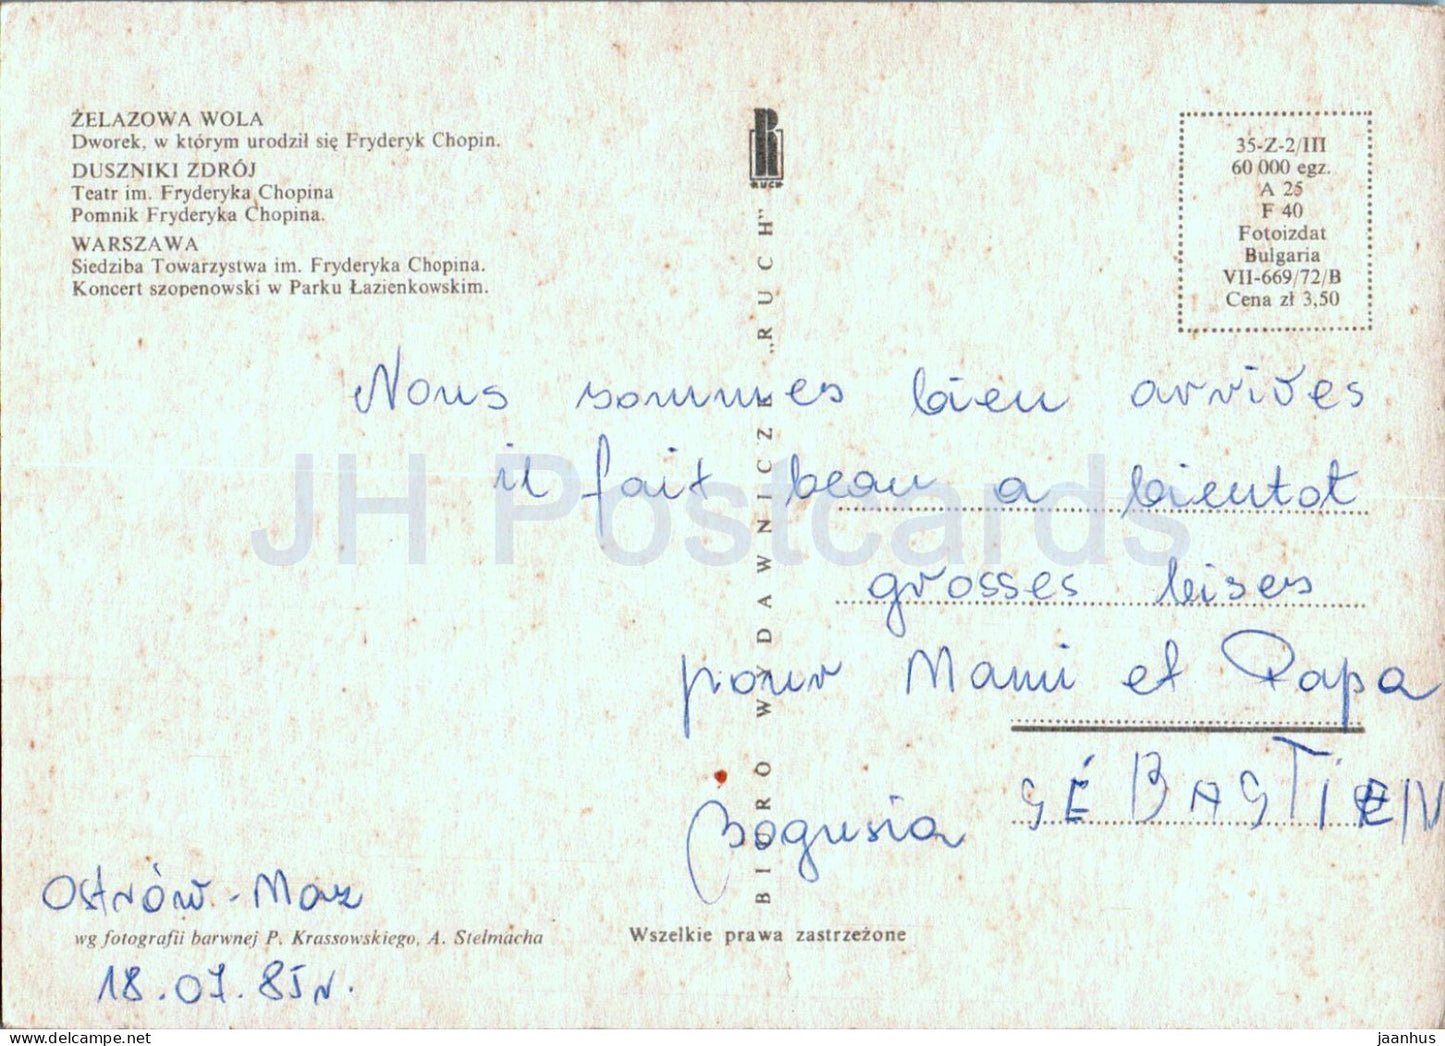 ŻELAZOWA WOLA
Dworek, w którym urodził się Fryderyk Chopin.
DUSZNIKI ZDRÓJ
Teatr im. Fryderyka Chopina
Pomnik Fryderyka Chopina.
WARSZAWA
Siedziba Towarzystwa im. Fryderyka Chopina.
Koncert szopenowski w Parku Łazienkowskim.
RUCH
BIURO WYDAWNICZE „RUCH"
35-Z-2/III
60 000 egz.
A 25
F 40
Fotoizdat
Bulgaria
VII-669/72/B
Cena zł 3,50
Nous sommes bien arrivés
il fait beau a bientot
grosses bises
pour Mami et Papa
SÉBASTIEN
Bogusia
Ostrów - Maz
wg fotografii barwnej P. Krassowskiego, A. Stelmacha
18.07.85r.
Wszelkie prawa zastrzeżone
JH Postcards
my.delcampe.com
jaanhus